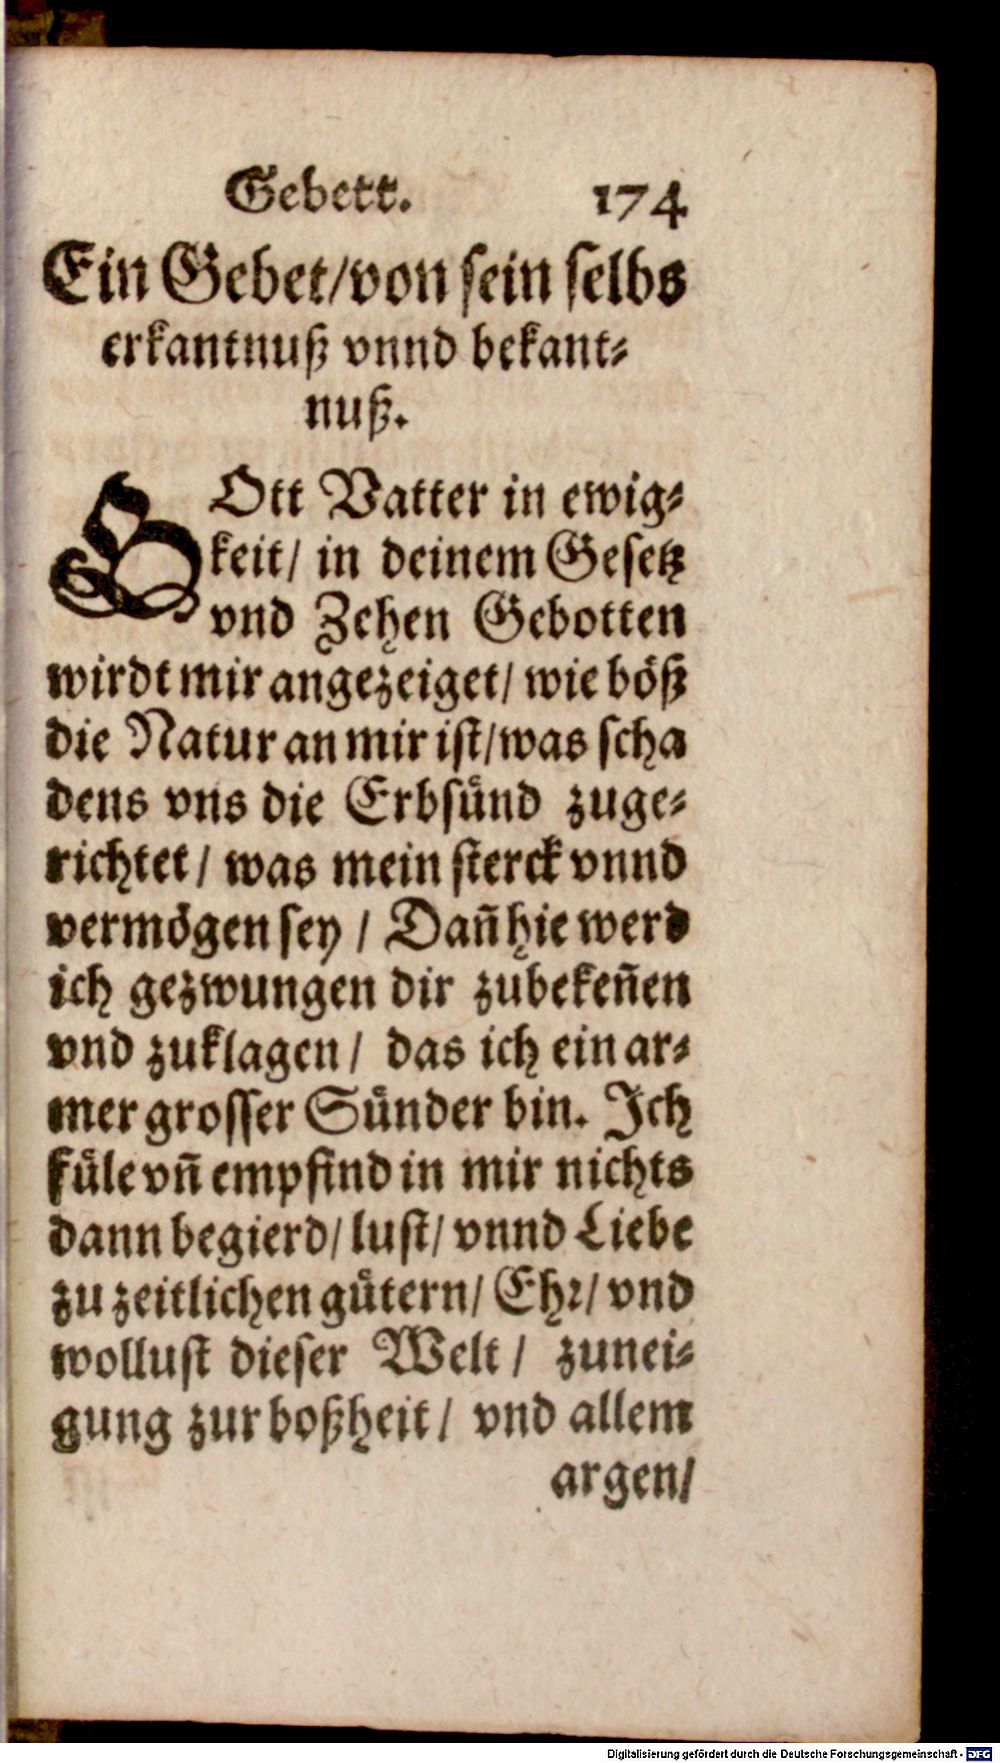 Gebett. 174
Ein Gebet/von sein selbs
erkantnuß vnnd bekant-
nuß.
GOtt Vatter in ewig-
keit/ in deinem Gesetz
vnd Zehen Gebotten
wirdt mir angezeiget/ wie böß
die Natur an mir ist/was scha
dens vns die Erbsünd zuge-
richtet/ was mein sterck vnnd
vermögen sey / Dañ hie werd
ich gezwungen dir zubekeñen
vnd zuklagen/ das ich ein ar-
mer grosser Sünder bin. Ich
füle vñ empfind in mir nichts
dann begierd/ lust/ vnnd Liebe
zu zeitlichen gütern/ Ehr/ vnd
wollust dieser Welt / zunei-
gung zur boßheit/ vnd allem
argen/
Digitalisierung gefördert durch die Deutsche Forschungsgemeinschaft - DFG